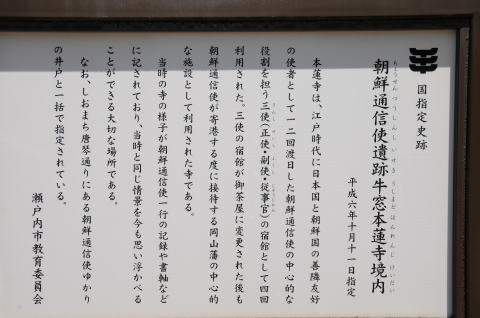 国指定史跡
朝鮮通信使遺跡牛窓本蓮寺境内
ちょうせんつうしんし いせき うしまど ほんれんじ けいだい
平成六年十月十一日指定
本蓮寺は、江戸時代に日本国と朝鮮国の善隣友好
の使者として一二回渡日した朝鮮通信使の中心的な
役割を担う三使(正使・副使・従事官)の宿館として四回
利用された。三使の宿館が御茶屋に変更された後も
朝鮮通信使が寄港する度に接待する岡山藩の中心的
な施設として利用された寺である。
当時の寺の様子が朝鮮通信使一行の記録や書軸など
に記されており、当時と同じ情景を今も思い浮かべる
ことができる大切な場所である。
なお、しおまち唐琴通りにある朝鮮通信使ゆかり
の井戸と一括で指定されている。
瀬戸内市教育委員会